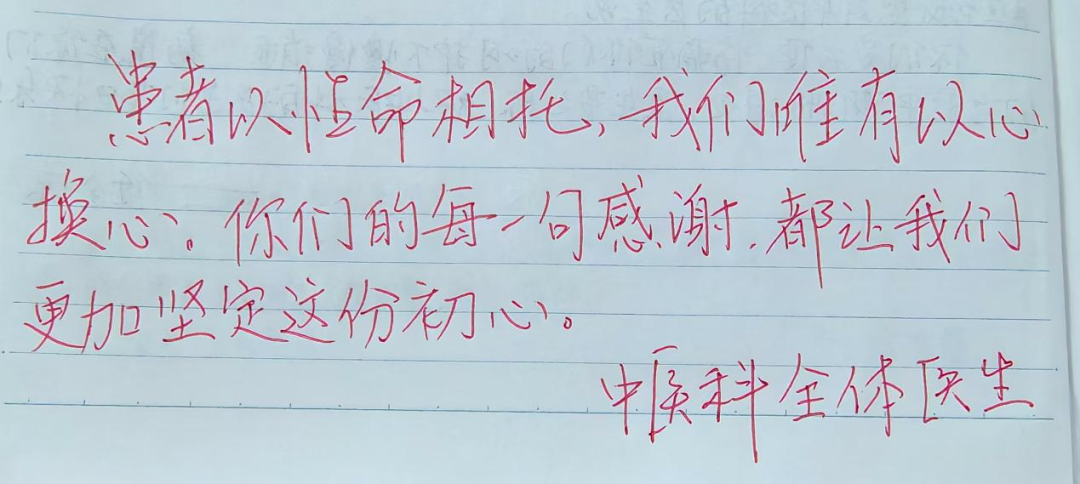 患者以性命相托,我们唯有以心
换心。你们的每一句感谢,都让我们
更加坚定这份初心。
中医科全体医生